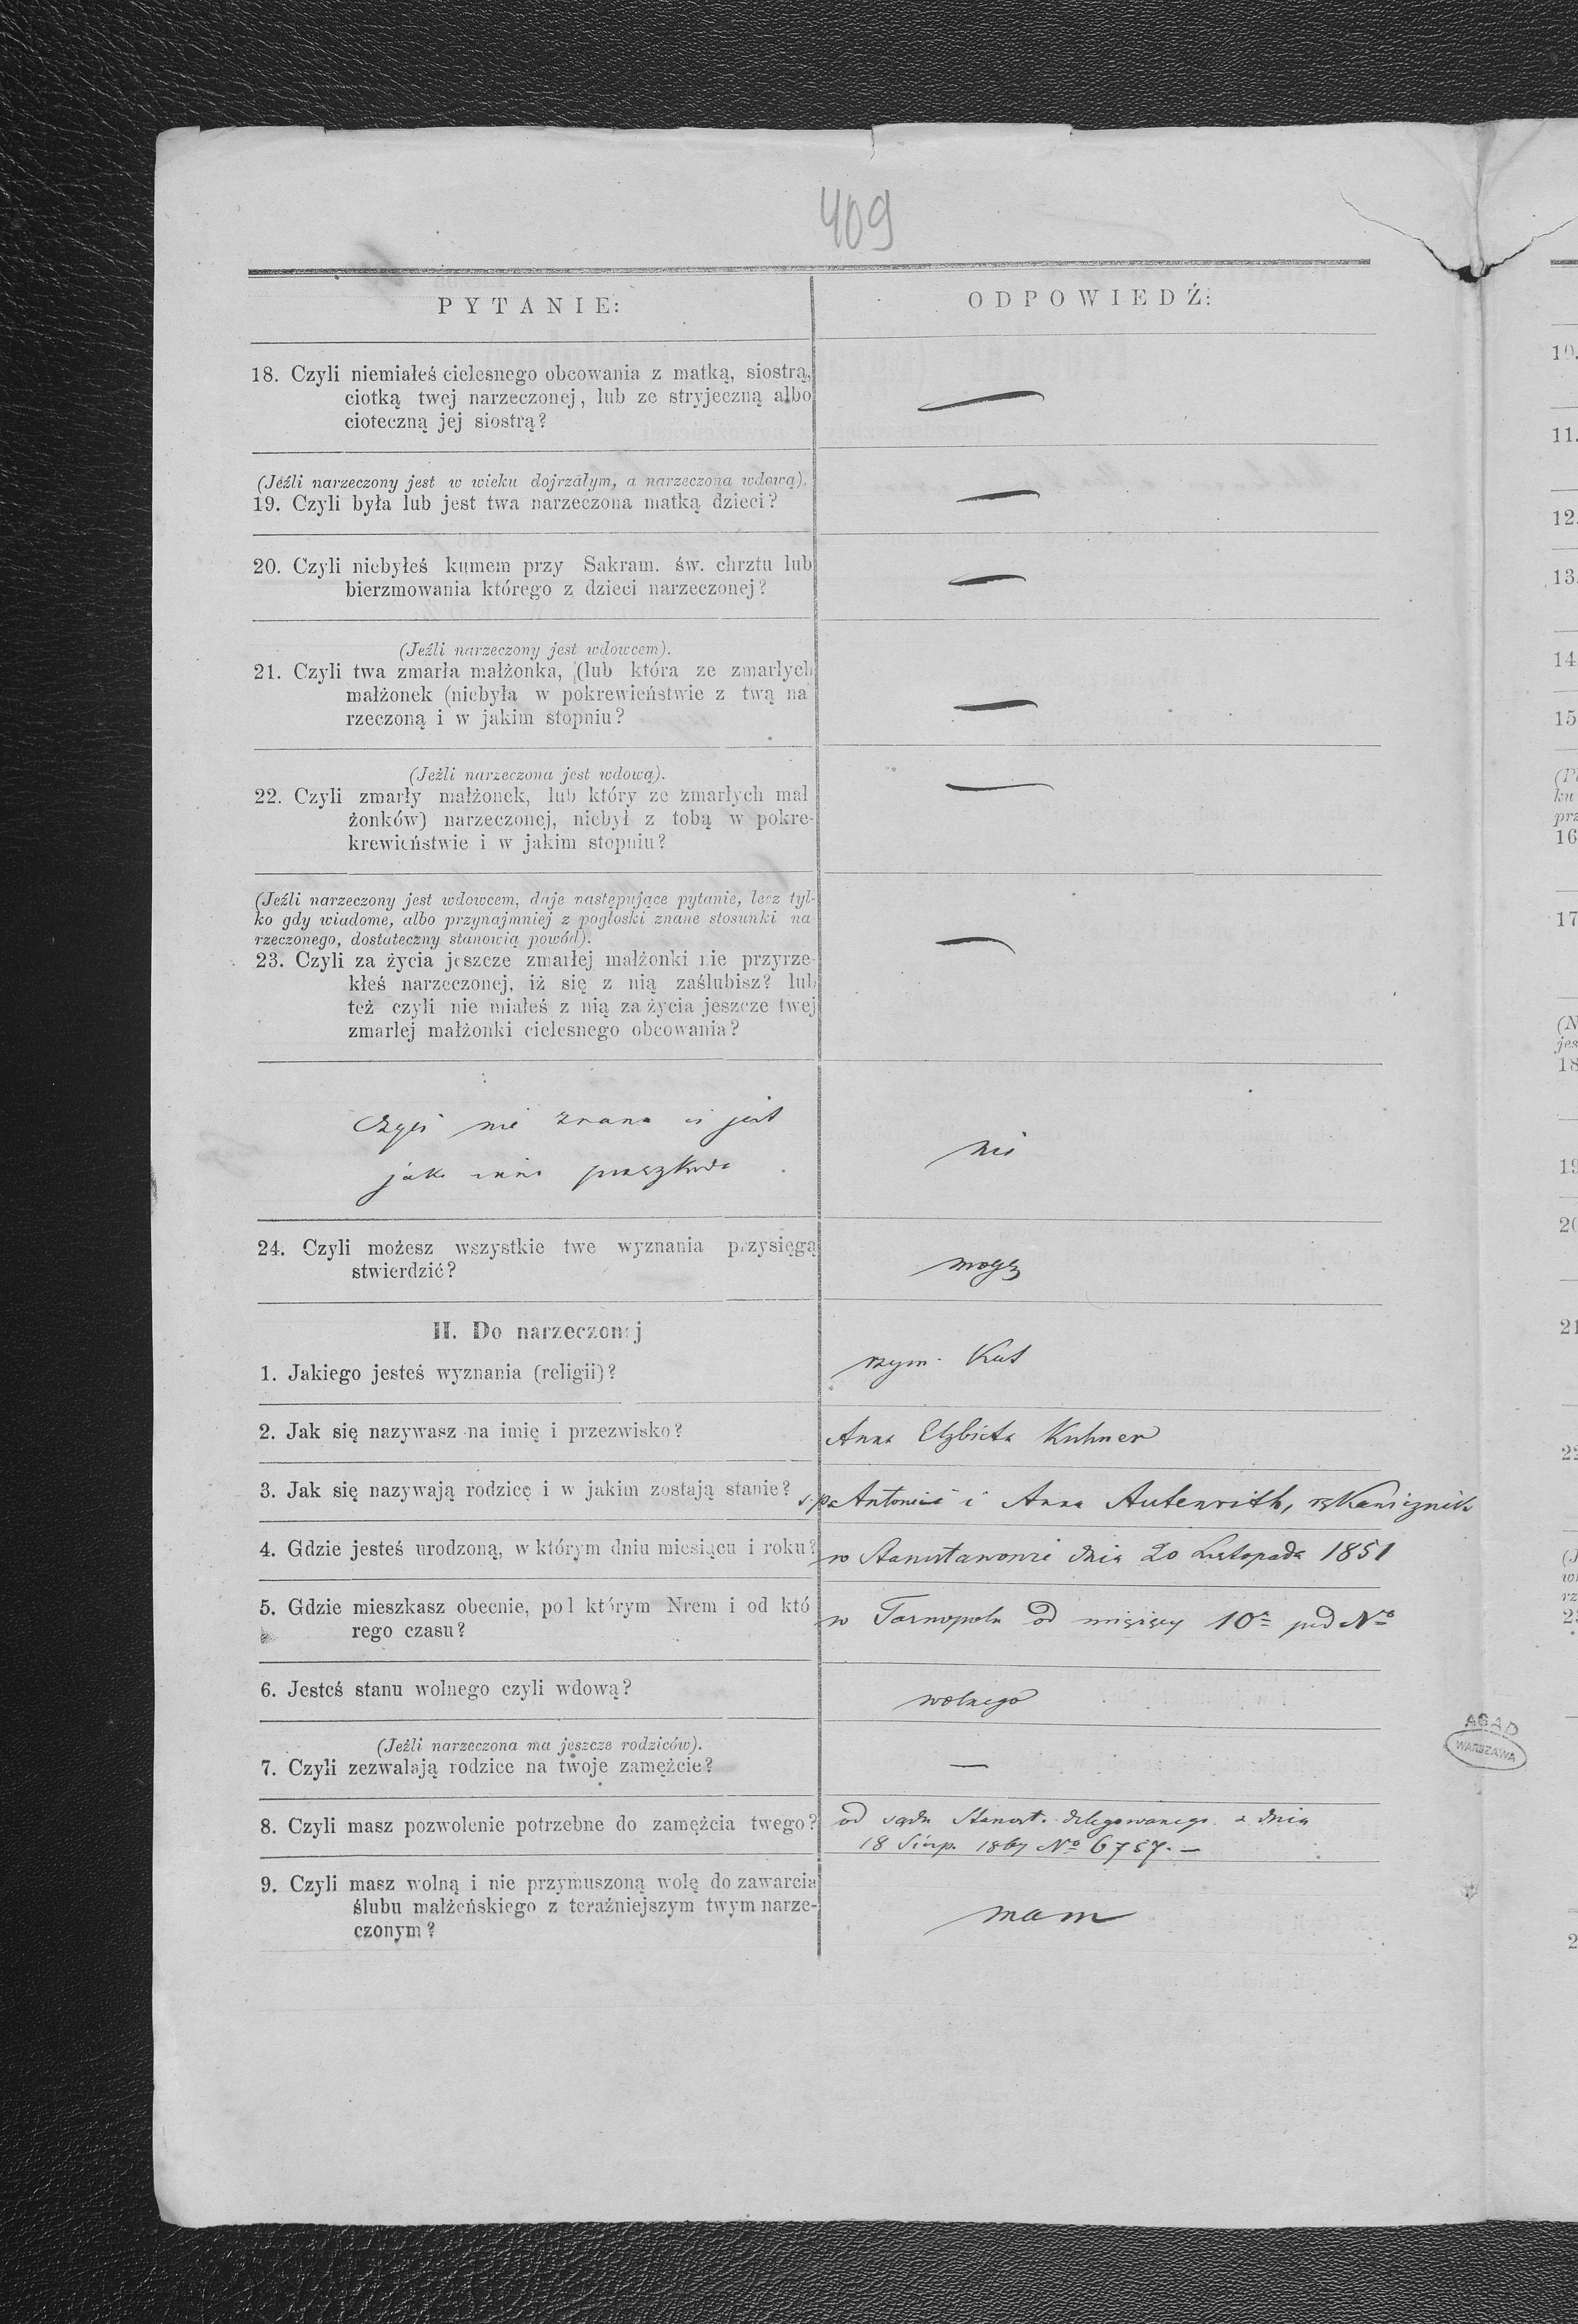 409
PYTANIE:
ODPOWIEDŹ:
18. Czyli niemiałeś cielesnego obcowania z matką, siostrą,
ciotką twej narzeczonej, lub ze stryjeczną albo
cioteczną jej siostrą?
—
(Jeźli narzeczony jest w wieku dojrzałym, a narzeczona wdową).
19. Czyli była lub jest twa narzeczona matką dzieci?
—
20. Czyli niebyłeś kumem przy Sakram. św. chrztu lub
bierzmowania którego z dzieci narzeczonej?
—
(Jeźli narzeczony jest wdowcem).
21. Czyli twa zmarła małżonka, (lub która ze zmarłych
małżonek (niebyła w pokrewieństwie z twą na
rzeczoną i w jakim stopniu?
—
(Jeźli narzeczona jest wdową).
22. Czyli zmarły małżonek, lub który ze zmarłych mał
żonków) narzeczonej, niebył z tobą w pokre-
krewieństwie i w jakim stopniu?
—
(Jeźli narzeczony jest wdowcem, daje następujące pytanie, lecz tyl-
ko gdy wiadome, albo przynajmniej z pogłoski znane stosunki na
rzeczonego, dostateczny stanowią powód).
23. Czyli za życia jeszcze zmarłej małżonki nie przyrze-
kłeś narzeczonej, iż się z nią zaślubisz? lub
też czyli nie miałeś z nią za życia jeszcze twej
zmarłej małżonki cielesnego obcowania?
—
nie znana ci jest
jaka inna przeszkoda
nie
24. Czyli możesz wszystkie twe wyznania przysięgą
stwierdzić?
mogę
II. Do narzeczonej
1. Jakiego jesteś wyznania (religii)?
rzym. Kat
2. Jak się nazywasz na imię i przezwisko?
Anna Elżbieta Kuhner
3. Jak się nazywają rodzice i w jakim zostają stanie?
ś. p. Antoni i Anna Autenrith,
4. Gdzie jesteś urodzoną, w którym dniu miesiącu i roku?
w Stanisławowie dnia 20 Listopada 1851
5. Gdzie mieszkasz obecnie, pod którym Nrem i od któ
rego czasu?
w Tarnopolu od miesięcy 10 pod No
6. Jesteś stanu wolnego czyli wdową?
wolnego
(Jeźli narzeczona ma jeszcze rodziców).
7. Czyli zezwalają rodzice na twoje zamężcie?
—
8. Czyli masz pozwolenie potrzebne do zamężcia twego?
od sądu delegowanego z dnia
18 Sierp. No 6757. —
9. Czyli masz wolną i nie przymuszoną wolę do zawarcia
ślubu małżeńskiego z teraźniejszym twym narze-
czonym?
mam
AGAD
WARSZAWA
10.
11.
12.
13.
14
15
16
17
18
19
20
21
22